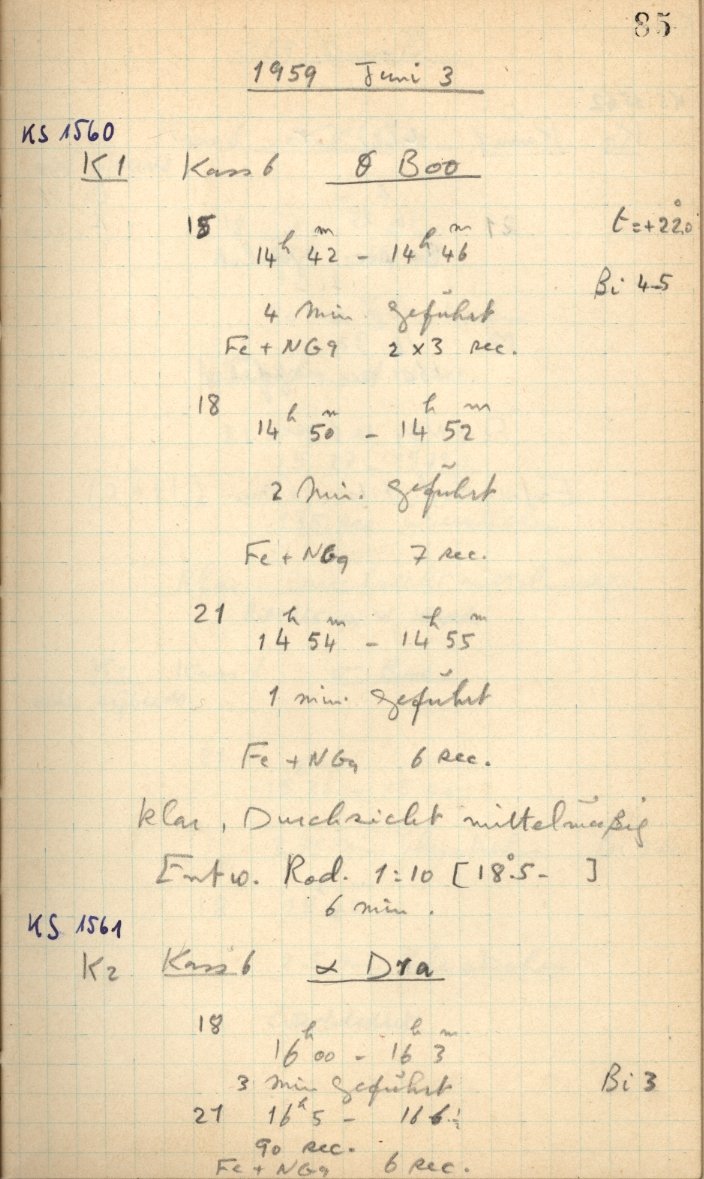 85
1959 Juni 3
KS 1560
K1 Kass 6 θ Boo
15 t=+22.°0
14h 42m - 14h 46m
Bi 4-5
4 Min. geführt
Fe + NG9 2 x 3 sec.
18
14h 50m - 14h 52m
2 Min. geführt
Fe + NG9 7 sec.
21
14h 54m - 14h 55m
1 min. geführt
Fe + NG9 6 sec.
klar, Durchsicht mittelmäßig
Entw. Rod. 1:10 [18°.5 - ]
6 min.
KS 1561
K2 Kass 6 α Dra
18
16h 00 - 16h 3m
3 min geführt Bi 3
21 16h 5 - 16 6
90 sec.
Fe + NG9 6 sec.